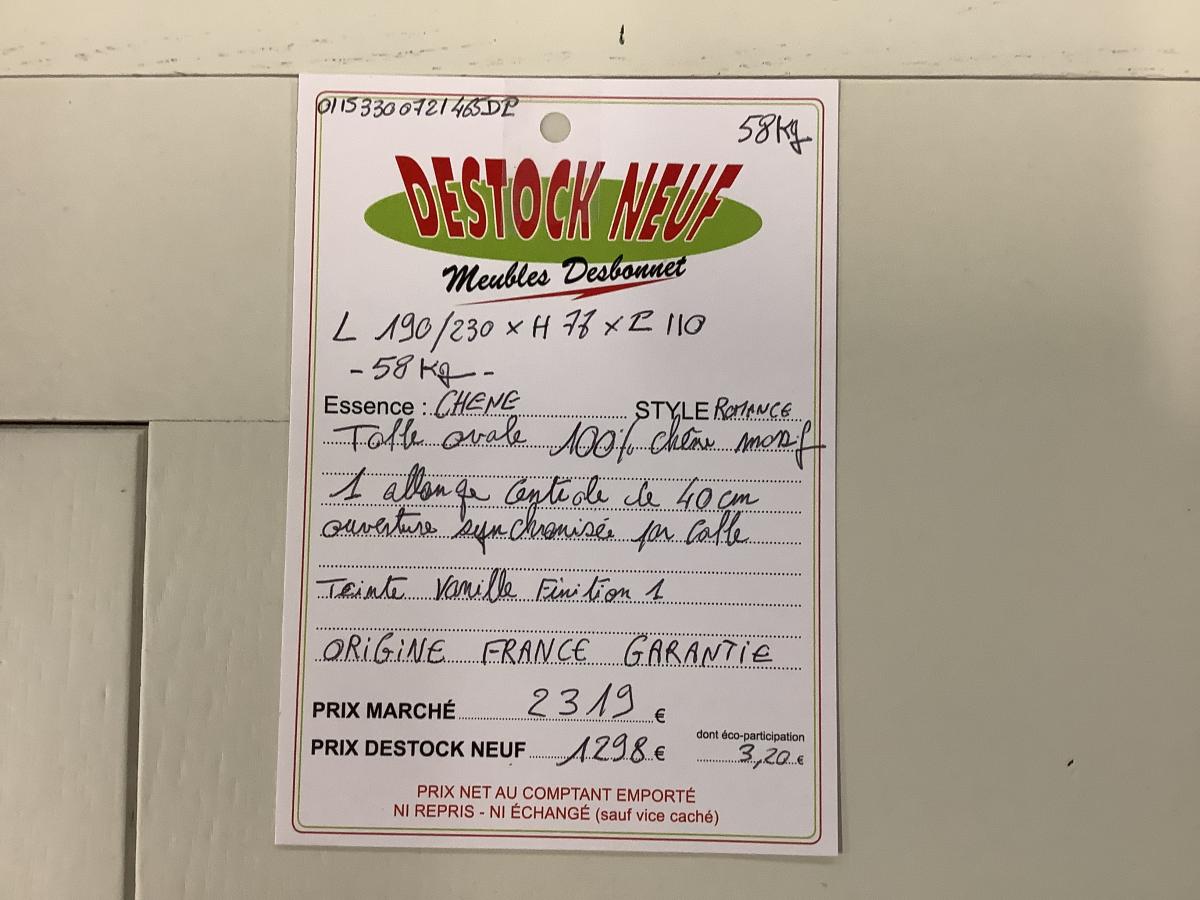 0115330072146SDP
58Kg
DESTOCK NEUF
Meubles Desbonnet
L 190/230 x H 78 x P 110
- 58 Kg -
Essence : CHENE STYLE ROMANCE
Table ovale 100% chêne massif
1 allonge centrale de 40 cm
ouverture synchronisée par cable
Teinte Vanille Finition 1
ORIGINE FRANCE GARANTIE
PRIX MARCHÉ 2319 €
dont éco-participation
PRIX DESTOCK NEUF 1298 € 3,20 €
PRIX NET AU COMPTANT EMPORTÉ
NI REPRIS - NI ÉCHANGÉ (sauf vice caché)